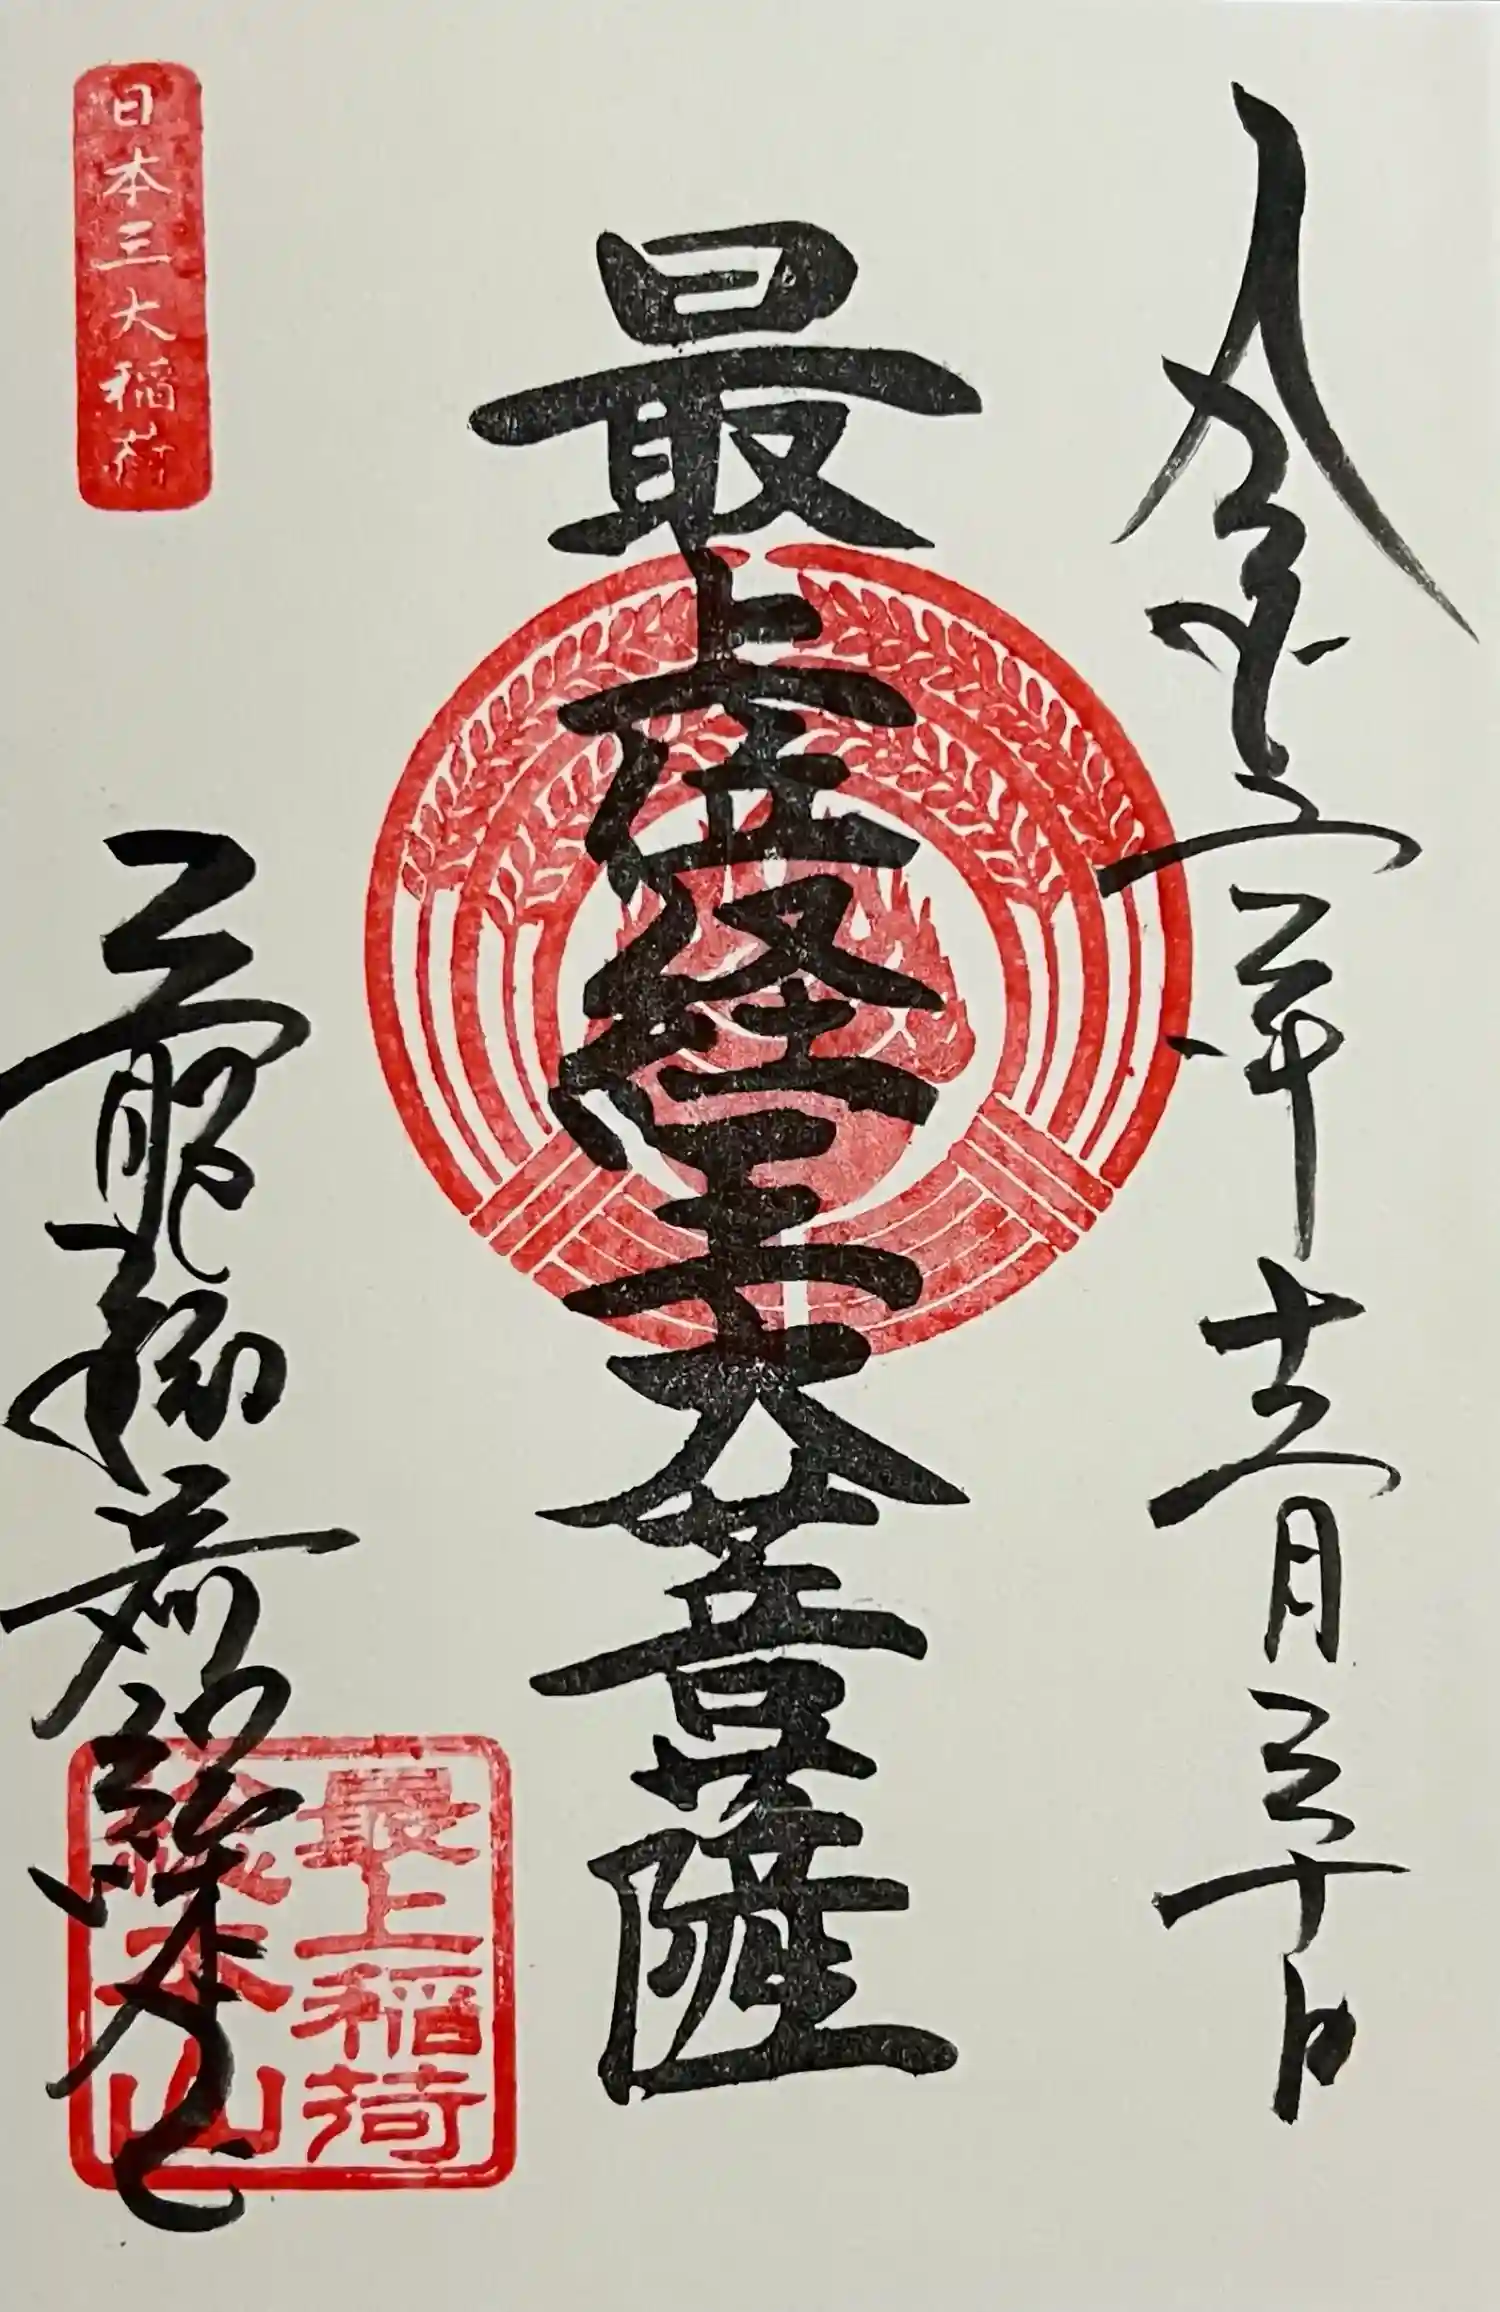 令和二年十二月三十日
最上位経王大菩薩
日本三大稲荷
稲荷総本山
最上稲荷
総本山